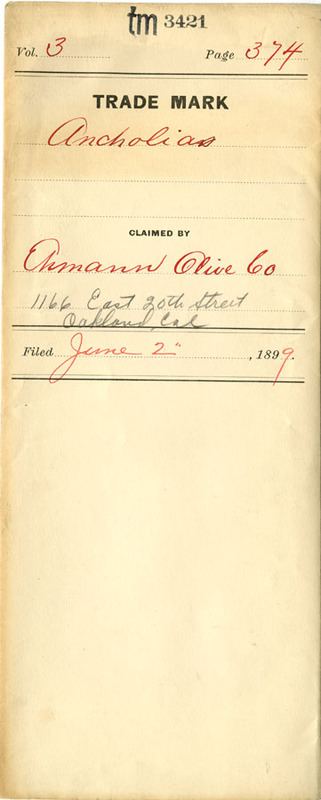 tm 3421
Vol. 3 Page 374
TRADE MARK
Ancholias
CLAIMED BY
Ehmann Olive Co
1166 East 20th Street
Oakland, Cal
Filed June 2", 1899.